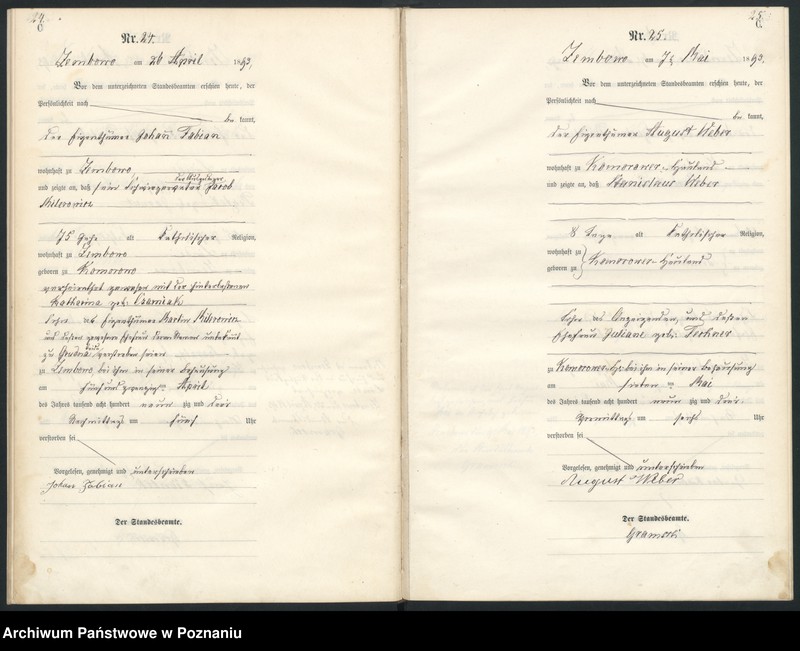 24.
C
Nr. 24.
Zembowo am 26 April 1893.
Vor dem unterzeichneten Standesbeamten erschien heute, der
Persönlichkeit nach
be kannt,
der Eigenthümer Johan Fabian
wohnhaft zu Zembowo,
und zeigte an, daß sein Schwiegervater Jacob
75 Jahre alt Katholischer Religion,
wohnhaft zu Zembowo
geboren zu Komorowo
verheirathet gewesen mit der hinterlassenen
Katharina geb.
Sohn des Eigenthümer Martin
und dessen Ehefrau deren Namen unbekannt
zu verstorben seien
zu Zembowo bei ihm in seiner Behausung
am fünf und zwanzigten April
des Jahres tausend acht hundert neun zig und drei
Nachmittags um fünf Uhr
verstorben sei
Vorgelesen, genehmigt und unterschrieben
Johan Fabian
Der Standesbeamte.
25.
C.
Nr. 25.
Zembowo am Mai 1893.
Vor dem unterzeichneten Standesbeamten erschien heute, der
Persönlichkeit nach
be kannt,
der Eigenthümer August Weber
wohnhaft zu Komorower-Hauland
und zeigte an, daß Stanislaus Weber
8 Tage alt Katholischer Religion,
wohnhaft zu
geboren zu Komorower-Hauland
Sohn des Anzeigenden, und dessen
Ehefrau Juliane geb.
zu Komorower-Hld. bei ihm in seiner Behausung
am sieben ten Mai
des Jahres tausend acht hundert neun zig und drei.
Vormittags um sechs Uhr
verstorben sei
Vorgelesen, genehmigt und unterschrieben
August Weber
Der Standesbeamte.
Archiwum Państwowe w Poznaniu